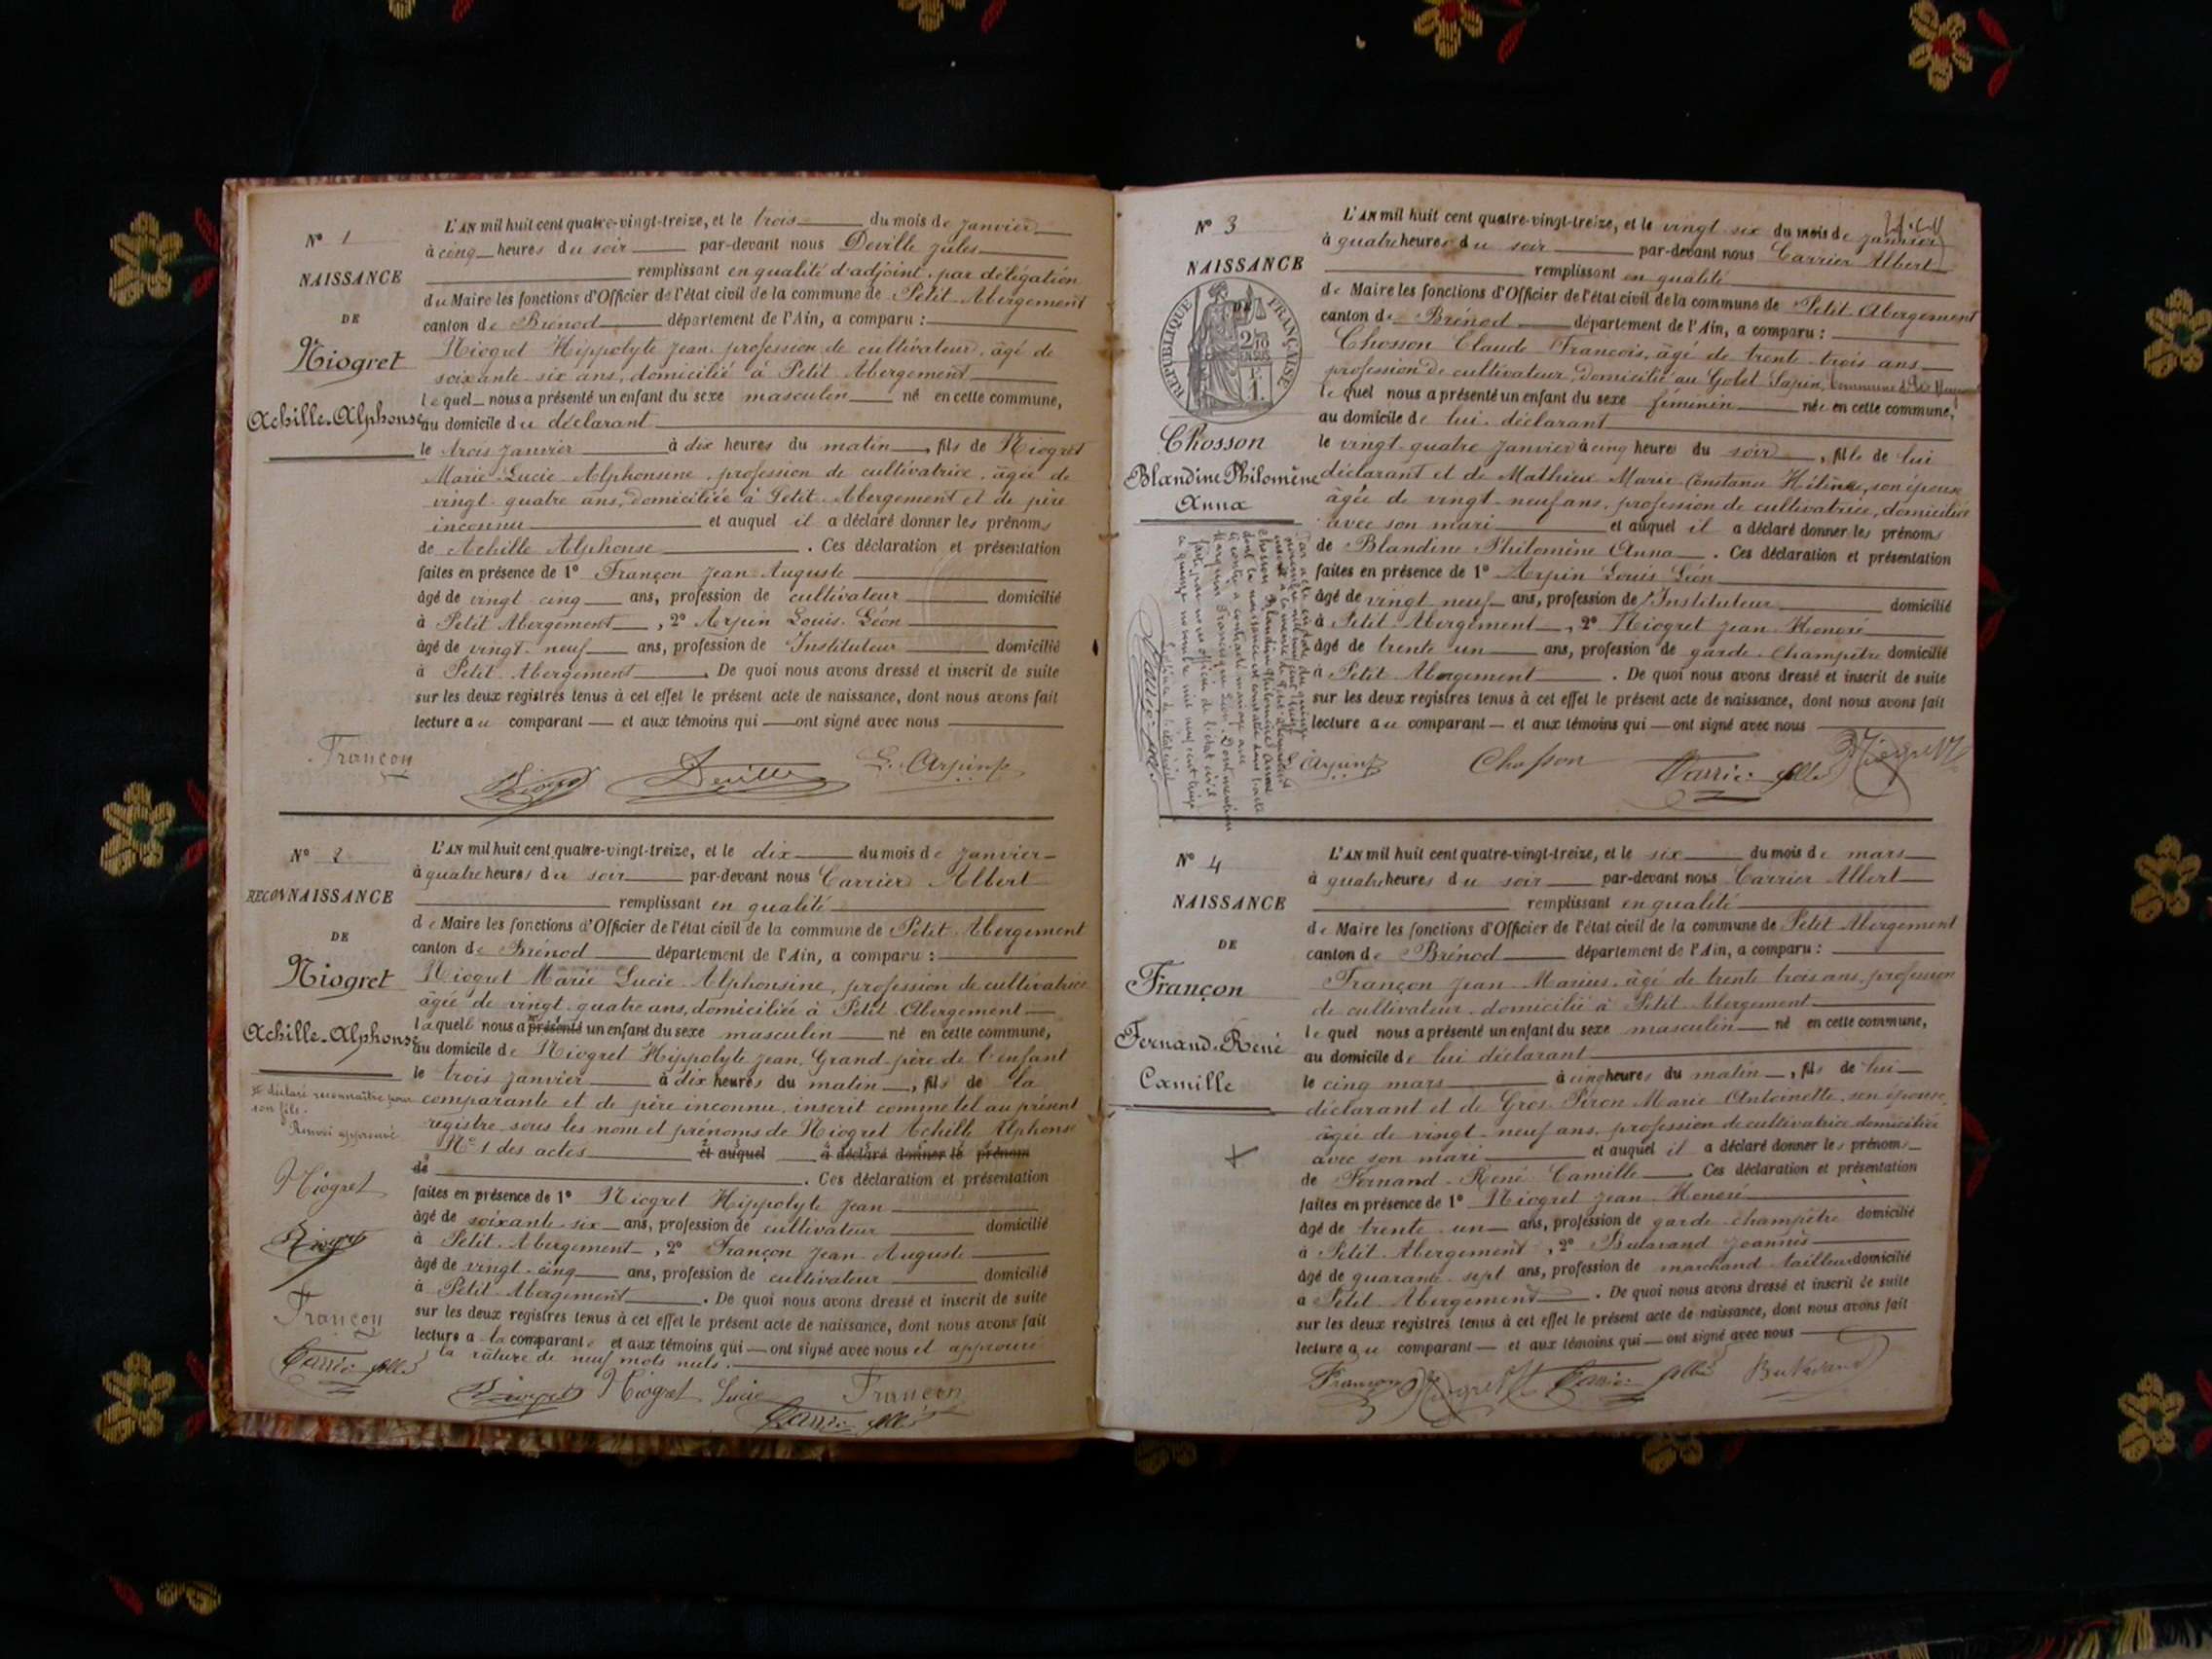 N° 1
NAISSANCE
DE
Niogret
Achille-Alphonse
L'AN mil huit cent quatre-vingt-treize, et le trois du mois de janvier
à cinq heures du soir par-devant nous Deville Jules
remplissant en qualité d'adjoint, par délégation
du Maire les fonctions d'Officier de l'état civil de la commune de Petit-Abergement
canton de Brénod département de l'Ain, a comparu :
Niogret Hippolyte Jean, profession de cultivateur, âgé de
soixante-six ans, domicilié à Petit Abergement
lequel nous a présenté un enfant du sexe masculin né en cette commune,
au domicile du déclarant
le trois janvier à dix heures du matin, fils de Niogret
Marie Lucie Alphonsine, profession de cultivatrice, âgée de
vingt-quatre ans, domiciliée à Petit-Abergement et de père
inconnu et auquel il a déclaré donner les prénoms
de Achille Alphonse. Ces déclaration et présentation
faites en présence de 1° Françon Jean Auguste
âgé de vingt-cinq ans, profession de cultivateur domicilié
à Petit Abergement, 2° Arpin Louis Léon
âgé de vingt-neuf ans, profession de Instituteur domicilié
à Petit Abergement. De quoi nous avons dressé et inscrit de suite
sur les deux registres tenus à cet effet le présent acte de naissance, dont nous avons fait
lecture au comparant et aux témoins qui ont signé avec nous
Françon Niogret Deville L. Arpin
N° 2
RECONNAISSANCE
DE
Niogret
Achille-Alphonse
a déclaré reconnaître pour
son fils.
Renvoi approuvé
Niogret
Niogret
Françon
Carrier Albert
L'AN mil huit cent quatre-vingt-treize, et le dix du mois de janvier
à quatre heures du soir par-devant nous Carrier Albert
remplissant en qualité
de Maire les fonctions d'Officier de l'état civil de la commune de Petit-Abergement
canton de Brénod département de l'Ain, a comparu :
Niogret Marie Lucie Alphonsine, profession de cultivatrice
âgée de vingt-quatre ans, domiciliée à Petit-Abergement
laquelle nous a présenté un enfant du sexe masculin né en cette commune,
au domicile de Niogret Hippolyte Jean, Grand-père de l'enfant
le trois janvier à dix heures du matin, fils de la
comparante et de père inconnu, inscrit comme tel au présent
registre sous les nom et prénoms de Niogret Achille Alphonse
N° 1 des actes et auquel a déclaré donner le prénom
de . Ces déclaration et présentation
faites en présence de 1° Niogret Hippolyte Jean
âgé de soixante-six ans, profession de cultivateur domicilié
à Petit-Abergement, 2° Françon Jean Auguste
âgé de vingt-cinq ans, profession de cultivateur domicilié
à Petit-Abergement. De quoi nous avons dressé et inscrit de suite
sur les deux registres tenus à cet effet le présent acte de naissance, dont nous avons fait
lecture a la comparante et aux témoins qui ont signé avec nous et approuvé
la rature de neuf mots nuls.
Niogret Niogret Lucie Françon
Carrier Albert
N° 3
NAISSANCE
RÉPUBLIQUE FRANÇAISE
2/10 EN SUS
Chosson
Blandine Philomène
Anna
L'AN mil huit cent quatre-vingt-treize, et le vingt-six du mois de janvier
à quatre heures du soir par-devant nous Carrier Albert
remplissant en qualité
de Maire les fonctions d'Officier de l'état civil de la commune de Petit-Abergement
canton de Brénod département de l'Ain, a comparu :
Chosson Claude François, âgé de trente-trois ans
profession de cultivateur, domicilié au Golet Sapin, commune de
lequel nous a présenté un enfant du sexe féminin née en cette commune,
au domicile de lui déclarant
le vingt-quatre janvier à cinq heures du soir, fille de lui
déclarant et de Mathieu Marie Constance Hélène, son épouse
âgée de vingt-neuf ans, profession de cultivatrice, domiciliée
avec son mari et auquel il a déclaré donner les prénoms
de Blandine Philomène Anna. Ces déclaration et présentation
faites en présence de 1° Arpin Louis Léon
âgé de vingt-neuf ans, profession de Instituteur domicilié
à Petit Abergement, 2° Niogret Jean Honoré
âgé de trente-un ans, profession de garde-champêtre domicilié
à Petit Abergement. De quoi nous avons dressé et inscrit de suite
sur les deux registres tenus à cet effet le présent acte de naissance, dont nous avons fait
lecture au comparant et aux témoins qui ont signé avec nous
L. Arpin Chosson Carrier Albert Niogret
N° 4
NAISSANCE
DE
Françon
Fernand-René
Camille
L'AN mil huit cent quatre-vingt-treize, et le six du mois de mars
à quatre heures du soir par-devant nous Carrier Albert
remplissant en qualité
de Maire les fonctions d'Officier de l'état civil de la commune de Petit Abergement
canton de Brénod département de l'Ain, a comparu :
Françon Jean Marius, âgé de trente-trois ans, profession
de cultivateur, domicilié à Petit Abergement
lequel nous a présenté un enfant du sexe masculin né en cette commune,
au domicile de lui déclarant
le cinq mars à cinq heures du matin, fils de lui
déclarant et de Gros-Piron Marie Antoinette, son épouse,
âgée de vingt-neuf ans, profession de cultivatrice domiciliée
avec son mari et auquel il a déclaré donner les prénoms
de Fernand-René Camille. Ces déclaration et présentation
faites en présence de 1° Niogret Jean Honoré
âgé de trente-un ans, profession de garde-champêtre domicilié
à Petit Abergement, 2° Butavand Joannès
âgé de quarante-sept ans, profession de marchand tailleur domicilié
à Petit-Abergement. De quoi nous avons dressé et inscrit de suite
sur les deux registres tenus à cet effet le présent acte de naissance, dont nous avons fait
lecture au comparant et aux témoins qui ont signé avec nous
Françon Niogret Carrier Albert Butavand